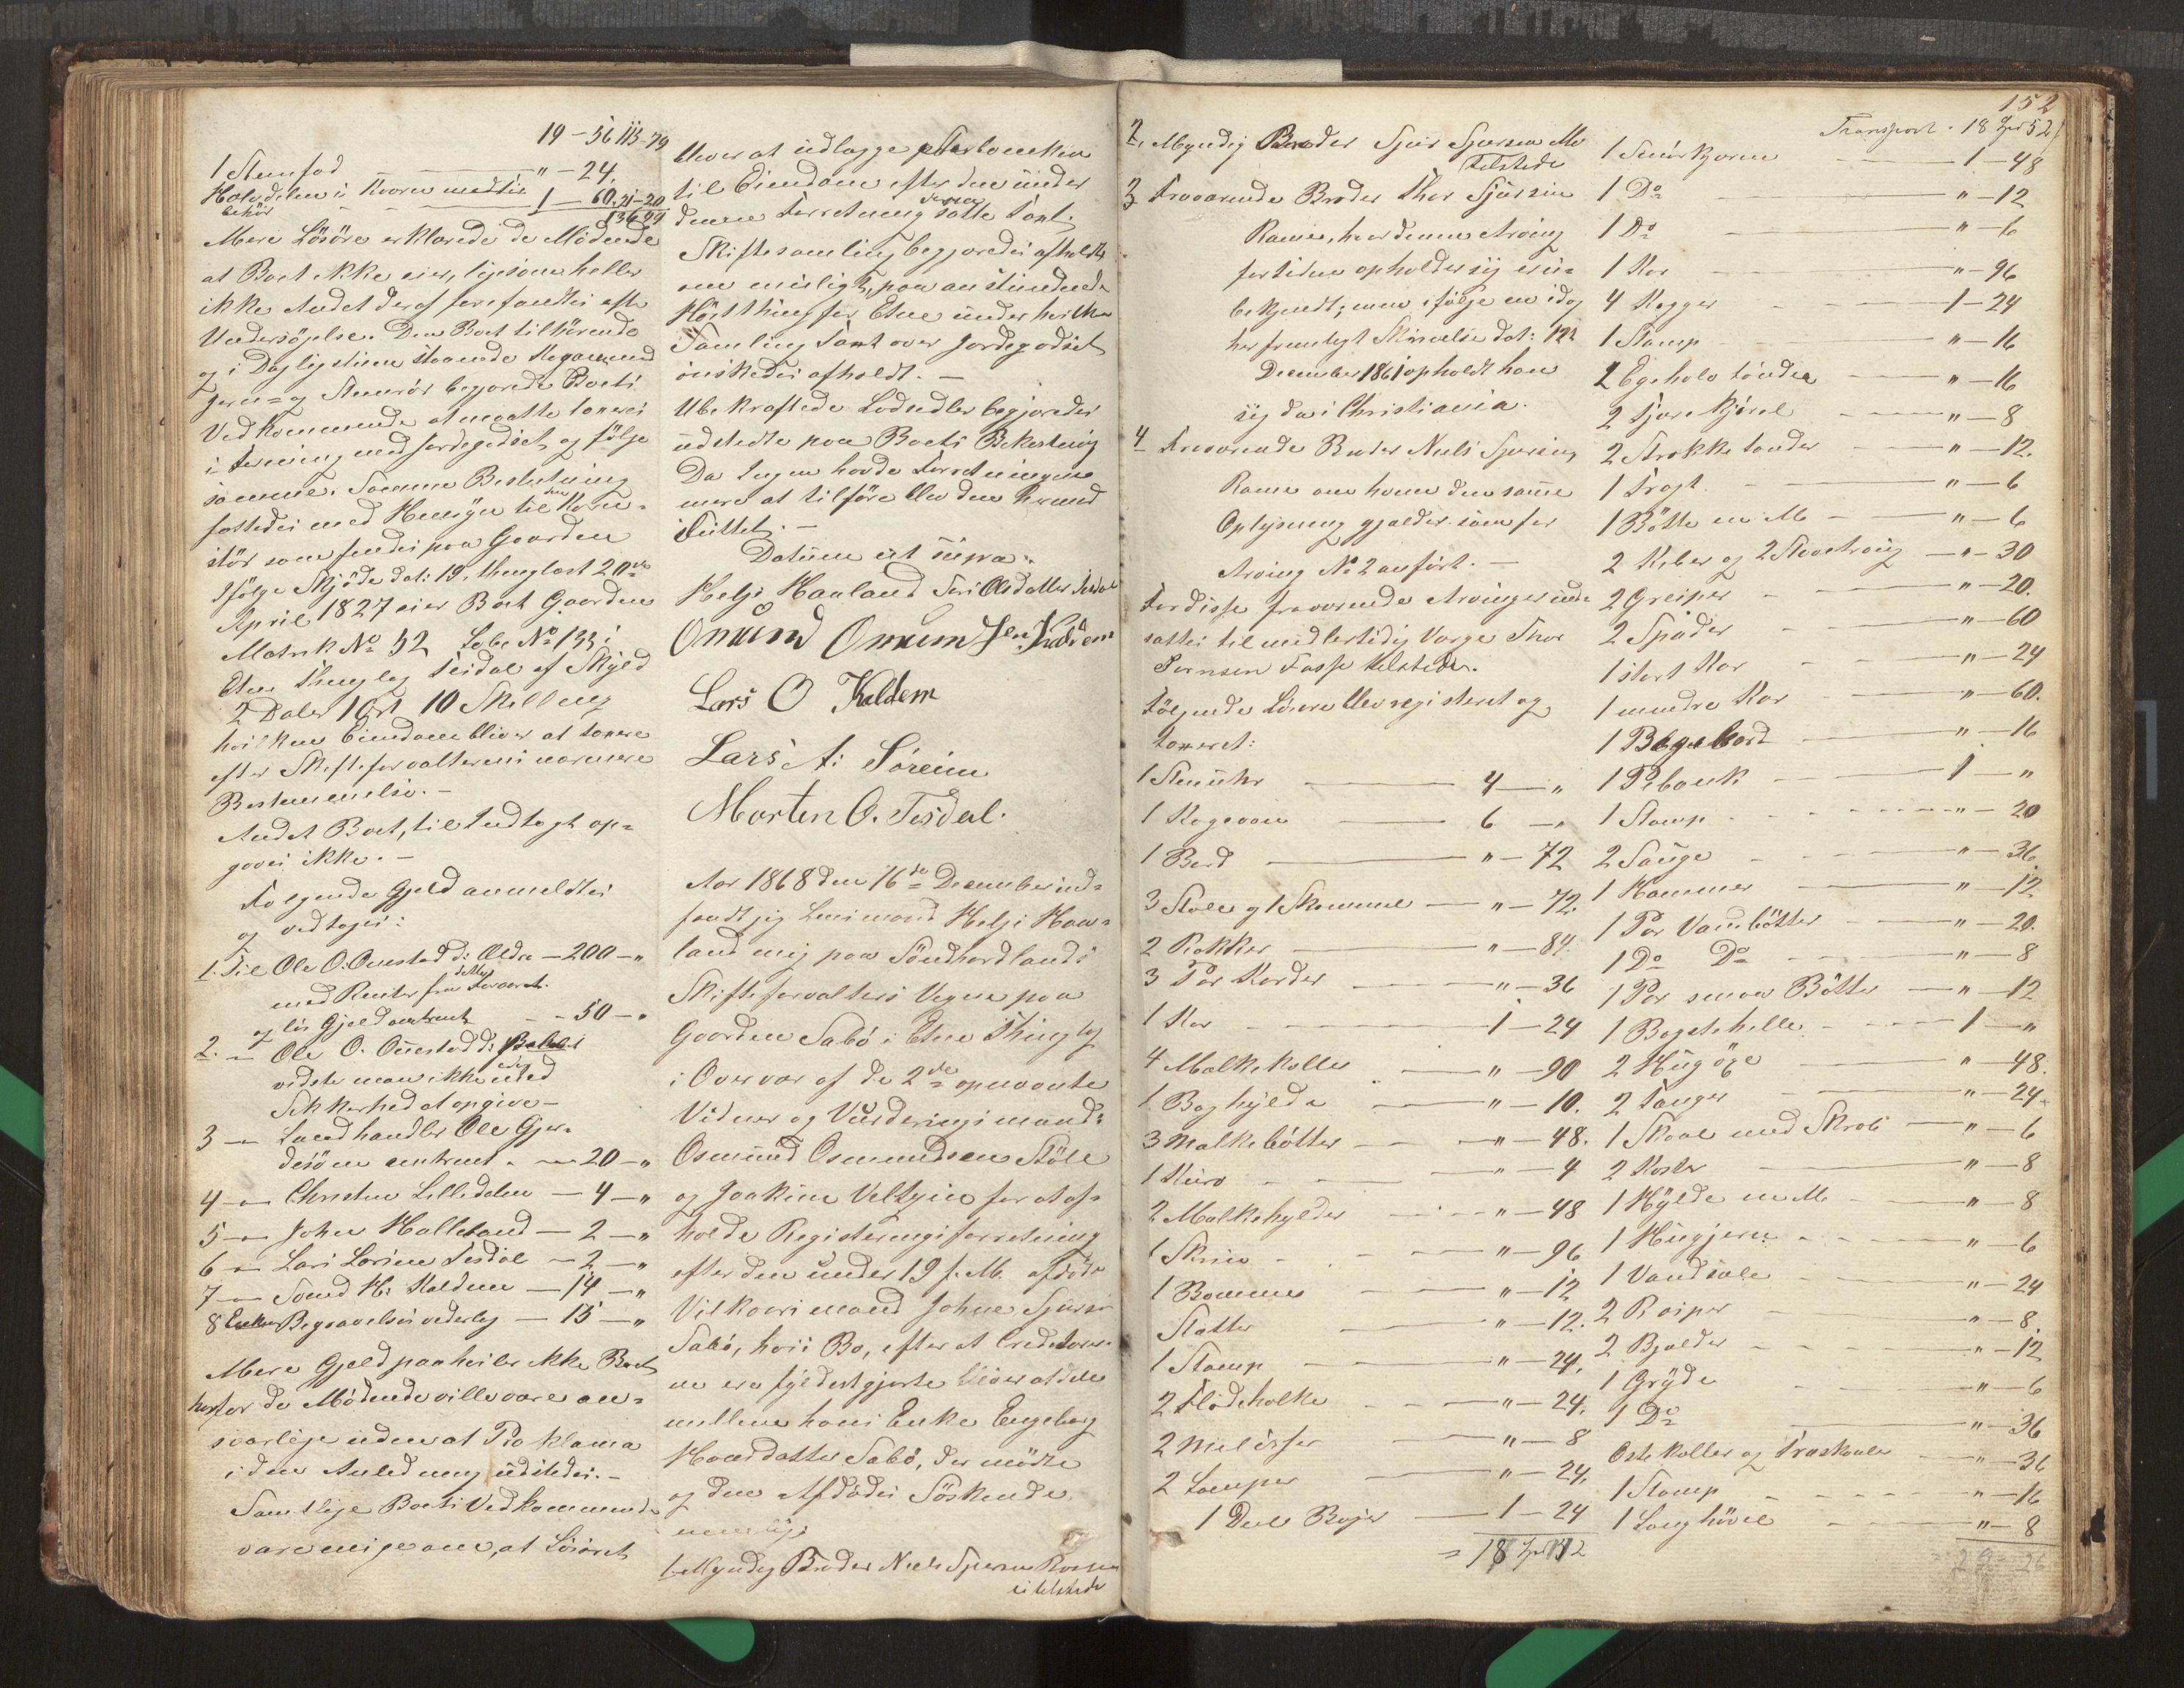 19 – 56 113-79
1 Stenfad " – 24.
Halvdelen i Kværn med til
behør 1 – 60. 21-20
136 99
Mere Lösöre erklærede de Mödende
at Boet ikke eier, ligesom heller
ikke Andet deraf forefandtes efter
Undersögelse. Den Boet tilhörende
og i Dagligstuen staaende Kogeovn med
Jern= og Steenrör begjærede Boets
Vedkommende at maatte taxeres
i Forening med Jordegodset og fölge
samme. Samme Beslutning
fattedes med Hensyn til den Korn-
stör som findes paa Gaarden
Ifölge Skjöde dat: 19, thinglæst 20de
April 1827 eier Boet Gaarden
Matrik No 52 Löbe No 133 i
Etne Thinglag Teisdal af Skyld
2 Daler 1 Ort 10 Skilling
hvilken Eiendom bliver at taxere
efter Skifteforvalterens nærmere
Bestemmelse. –
Andet Boet, til Indtægt op=
gaves ikke. –
Fölgende Gjeld anmeldtes
og vedtoges:
1. Til Ole O. Öuestad d: Ældre – 200 – "
med Renter fra dette Foraaret.
og lös Gjeld omtrent – 50 – "
2. – Ole O. Öuestad d:
vidste man ikke med
Sikkerhed at opgive –
3 – Landhandler Ole Gjer-
desöen omtrent – 20 – "
4 – Christen Lilledalen – 4 – "
5 – John Halleland – 2 – "
6 – Lars Larsen Teisdal – 2 – "
7 – Svend H: Kaldem – 14 – "
8 Enken Begravelsesvederlag – 15 – "
Mere Gjeld paahviler ikke Boet
hvorfor de Mödende ville være an=
svarlige uden at Proklama
i den Anledning udstedes. –
Samtlige Boets Vedkommende
vare enige om, at Lösöret
bliver at udlægge Stervboenken
til Eiendom efter den under
denne Forretning satte Taxt.
Skiftesamling begjæredes afholdt
om muligt, paa anstundende
Höstthing for Etne under hvilken
Samling Taxt over Jordegodset
önskedes afholdt. –
Ubekræftede Lodsedler begjæredes
udstedte paa Boets Bekostning
Da Ingen havde Forretningen
mere at tilföre blev den hermed
sluttet. –
Datum ut supra.
Helje Haaland Siri Olsdatter Teisdal
Omund Omundsen Kaldem
Lars O Kaldem
Lars A: Söreim
Morten O. Tesdal.
Aar 1868 den 16de December ind=
fandt jeg Lensmand Helje Haa=
land mig paa Söndhordlands
Skifteforvalters Vegne paa
Gaarden Sæbö i Etne Thinglag
i Overvær af de 2de opnævnte
Vidner og Vurderingsmænd:
Osmund Osmundsen Stöle
og Joakim Veltzin for at af=
holde Registreringsforretning
efter den under 19 f. M. afdöde
Vilkaarsmand Johne Sjursen
Sæbö, hvis Bo, efter at Creditorer=
ne ere fyldestgjorte bliver at dele
mellem hans Enke Engeborg
Haavsdatter Sæbö, der mödte
og den Afdödes Söskende
nemlig:
1. Myndig Broder Niels Sjursen
tilstede
152
2. Myndig Broder Sjur Sjursen Mo
tilstede
3 Fraværende Broder Thor Sjursen
Rame, hvor denne Arving
for tiden opholder sig er u=
bekjendt; men ifölge en idag
her fremlagt Skrivelse dat: 12te
December 1861 opholdt han
sig da i Christiania.
4 Fraværende Broder Niels Sjursen
Rame om hvem den samme
Oplysning gjælder som for
Arving No 2 anfört. –
For disse fraværende Arvinger ind=
sattes til midlertidig Værge Thor
Fosse tilstede.
Fölgende Lösöre blev registeret og
taxeret:
1 Stueuhr 4 – "
1 Kogeovn 6 – "
1 Bord " – 72
3 Stole og 1 Skammel – " – 72.
2 Rokker " – 84.
3 Par Karder " – 36
1 Kar 1 – 24
4 Melkekoller " – 90
1 Baghylde " – 10.
3 Melkebötter " – 48.
1 Kurv " – 4
2 Melkehylder " – 48
1 Skrin " – 96
1 Bomme " – 12
Slatter " – 12.
1 Stamp " – 24.
2 Flödeholke " – 24.
2 " – 8
2 Lamper " – 24.
1 Deel Böjer 1 – 24
= 18 Spd 112
Transport . 18 Spd 52
1 Smörkjerne 1 – 48
1 Do " – 12
1 Do " – 6
1 Kar " – 96
4 Kagger 1 – 24
1 Stamp " – 16
2 Egehalv tönder " – 16
2 Tjærekjörel " – 8
2 Strokketönder " – 12.
1 Tragt " – 6
1 Bötte m M – " – 6
2 Kiber og 2 Staatroug – " – 30
2 Greiper " – 20.
2 Spader " – 60
1 stort Kar " – 24
1 mindre Kar " – 60.
1 Bagebord " – 16
1 Pibænk 1 – "
1 Stamp " – 20
2 Sauge " – 36.
1 Hammer " – 12
1 Par Vandbötter " – 20.
1 Do Do " – 8
1 Par smaae Bötter – " – 12
1 Bagstehelle 1 – "
2 Hugöxe " – 48.
2 Tænger " – 24.
1 Skaal med Skrab " – 6
2 Koster " – 8
1 Hylde m M " – 8
1 Hugjern " – 6
1 Vandsæle " – 24
2 Reiper " – 8.
2 Bjælder " – 12
1 Gryde " – 6
1 Do " – 36
Ostekoller og Træskaaler " – 36
1 Stamp " – 16
1 Langhövel " – 8
29 26